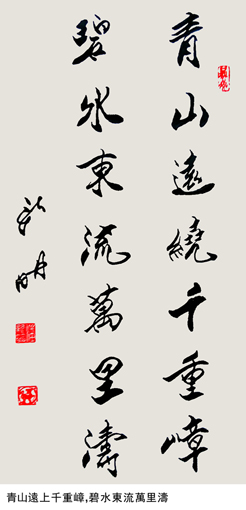 青山遠繞千重嶂
碧水東流萬里濤
青山遠上千重嶂,碧水東流萬里濤